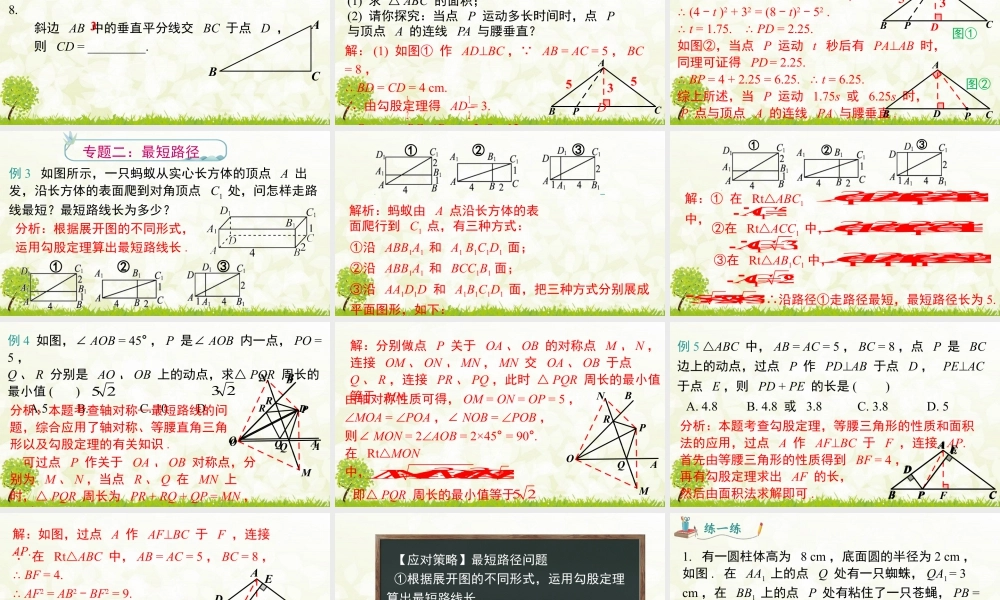 8.
斜边 AB 中的垂直平分线交 BC 于点 D ，
3
则 CD = ________.
A
B
C
(1) 求 △ ABC 的面积；
(2) 请你探究：当点 P 运动多长时间时，点 P
与顶点 A 的连线 PA 与腰垂直?
解：(1) 如图① 作 AD⊥BC ，∵ AB = AC = 5 ， BC
= 8 ，
∴ BD = CD = 4 cm.
∴ 由勾股定理得 AD = 3.
A
5
5
3
B
P
D
C
∴ (4－t )² + 3² = (8－t)²－5² .
∴ t = 1.75. ∴ PD = 2.25.
如图②，当点 P 运动 t 秒后有 PA⊥AB 时，
同理可证得 PD = 2.25.
∴ BP = 4 + 2.25 = 6.25. ∴ t = 6.25.
综上所述，当 P 运动 1.75s 或 6.25s 时，
P 点与顶点 A 的连线 PA 与腰垂直.
3
B P D C
图①
A
图②
B D P C
专题二：最短路径
例 3 如图所示，一只蚂蚁从实心长方体的顶点 A 出
发，沿长方体的表面爬到对角顶点 C₁ 处，问怎样走路
线最短？最短路线长为多少？
分析：根据展开图的不同形式，
运用勾股定理算出最短路线长 .
D₁
C₁
A₁
B₁
1
D
C
2
A
4
B
① ② ③
D₁ C₁
2
A₁ B₁
1
A 4 B
A₁ B₁ C₁
1
A 4 B 2 C
D D₁ C₁
2
A 1 A₁ 4 B₁
① ② ③
D₁ C₁
2
A₁ B₁
1
A 4 B
A₁ B₁ C₁
1
A 4 B 2 C
D D₁ C₁
2
A 1 A₁ 4 B₁
解析：蚂蚁由 A 点沿长方体的表
面爬行到 C₁ 点，有三种方式：
①沿 ABB₁A₁ 和 A₁B₁C₁D₁ 面；
②沿 ABB₁A₁ 和 BCC₁B₁ 面；
③沿 AA₁D₁D 和 A₁B₁C₁D₁ 面，把三种方式分别展成
平面图形，如下：
① ② ③
D₁ C₁
2
A₁ B₁
1
A 4 B
A₁ B₁ C₁
1
A 4 B 2 C
D D₁ C₁
2
A 1 A₁ 4 B₁
解：① 在 Rt△ABC₁
中，
②在 Rt△ACC₁ 中，
③在 Rt△AB₁C₁ 中，
∴沿路径①走路径最短，最短路径长为 5.
例 4 如图，∠ AOB = 45° ， P 是∠ AOB 内一点， PO =
5 ，
Q 、 R 分别是 AO 、 OB 上的动点，求△ PQR 周长的
最小值 ( ) 5√2 3√2
A. 5 B. C. 10 D.
分析：本题考查轴对称－最短路线的问
题，综合应用了轴对称、等腰直角三角
形以及勾股定理的有关知识 .
可过点 P 作关于 OA 、 OB 对称点，分
别为 M 、 N ，当点 R 、 Q 在 MN 上
时， △ PQR 周长为 PR + RQ + QP = MN ，
N
B
R
P
O
Q
A
M
解：分别做点 P 关于 OA 、 OB 的对称点 M 、 N ，
连接 OM 、 ON 、 MN ， MN 交 OA 、 OB 于点
Q 、 R ，连接 PR 、 PQ ，此时 △ PQR 周长的最小值
由轴对称性质可得， OM = ON = OP = 5 ，
∠MOA = ∠POA ，∠ NOB = ∠POB ，
则∠ MON = 2∠AOB = 2×45° = 90°.
在 Rt△MON
中，
即△ PQR 周长的最小值等于 5√2
N
B
R
P
O
Q
A
M
例 5 △ABC 中， AB = AC = 5 ， BC = 8 ，点 P 是 BC
边上的动点，过点 P 作 PD⊥AB 于点 D ， PE⊥AC
于点 E ，则 PD + PE 的长是 ( )
A. 4.8 B. 4.8 或 3.8 C. 3.8 D. 5
分析：本题考查勾股定理，等腰三角形的性质和面积
法的应用，过点 A 作 AF⊥BC 于 F ，连接 AP.
首先由等腰三角形的性质得到 BF = 4 ，
再有勾股定理求出 AF 的长，
然后由面积法求解即可 .
A
E
D
B P F C
解：如图，过点 A 作 AF⊥BC 于 F ，连接
AP.
∵ 在 Rt△ABC 中， AB = AC = 5 ， BC = 8 ，
∴ BF = 4.
∴ AF² = AB²－BF² = 9.
A
E
D
【应对策略】最短路径问题
①根据展开图的不同形式，运用勾股定理
算出最短路线长
练一练
1. 有一圆柱体高为 8 cm ，底面圆的半径为 2 cm ，
如图 . 在 AA₁ 上的点 Q 处有一只蜘蛛， QA₁ = 3
cm ，在 BB₁ 上的点 P 处有粘住了一只苍蝇， PB =